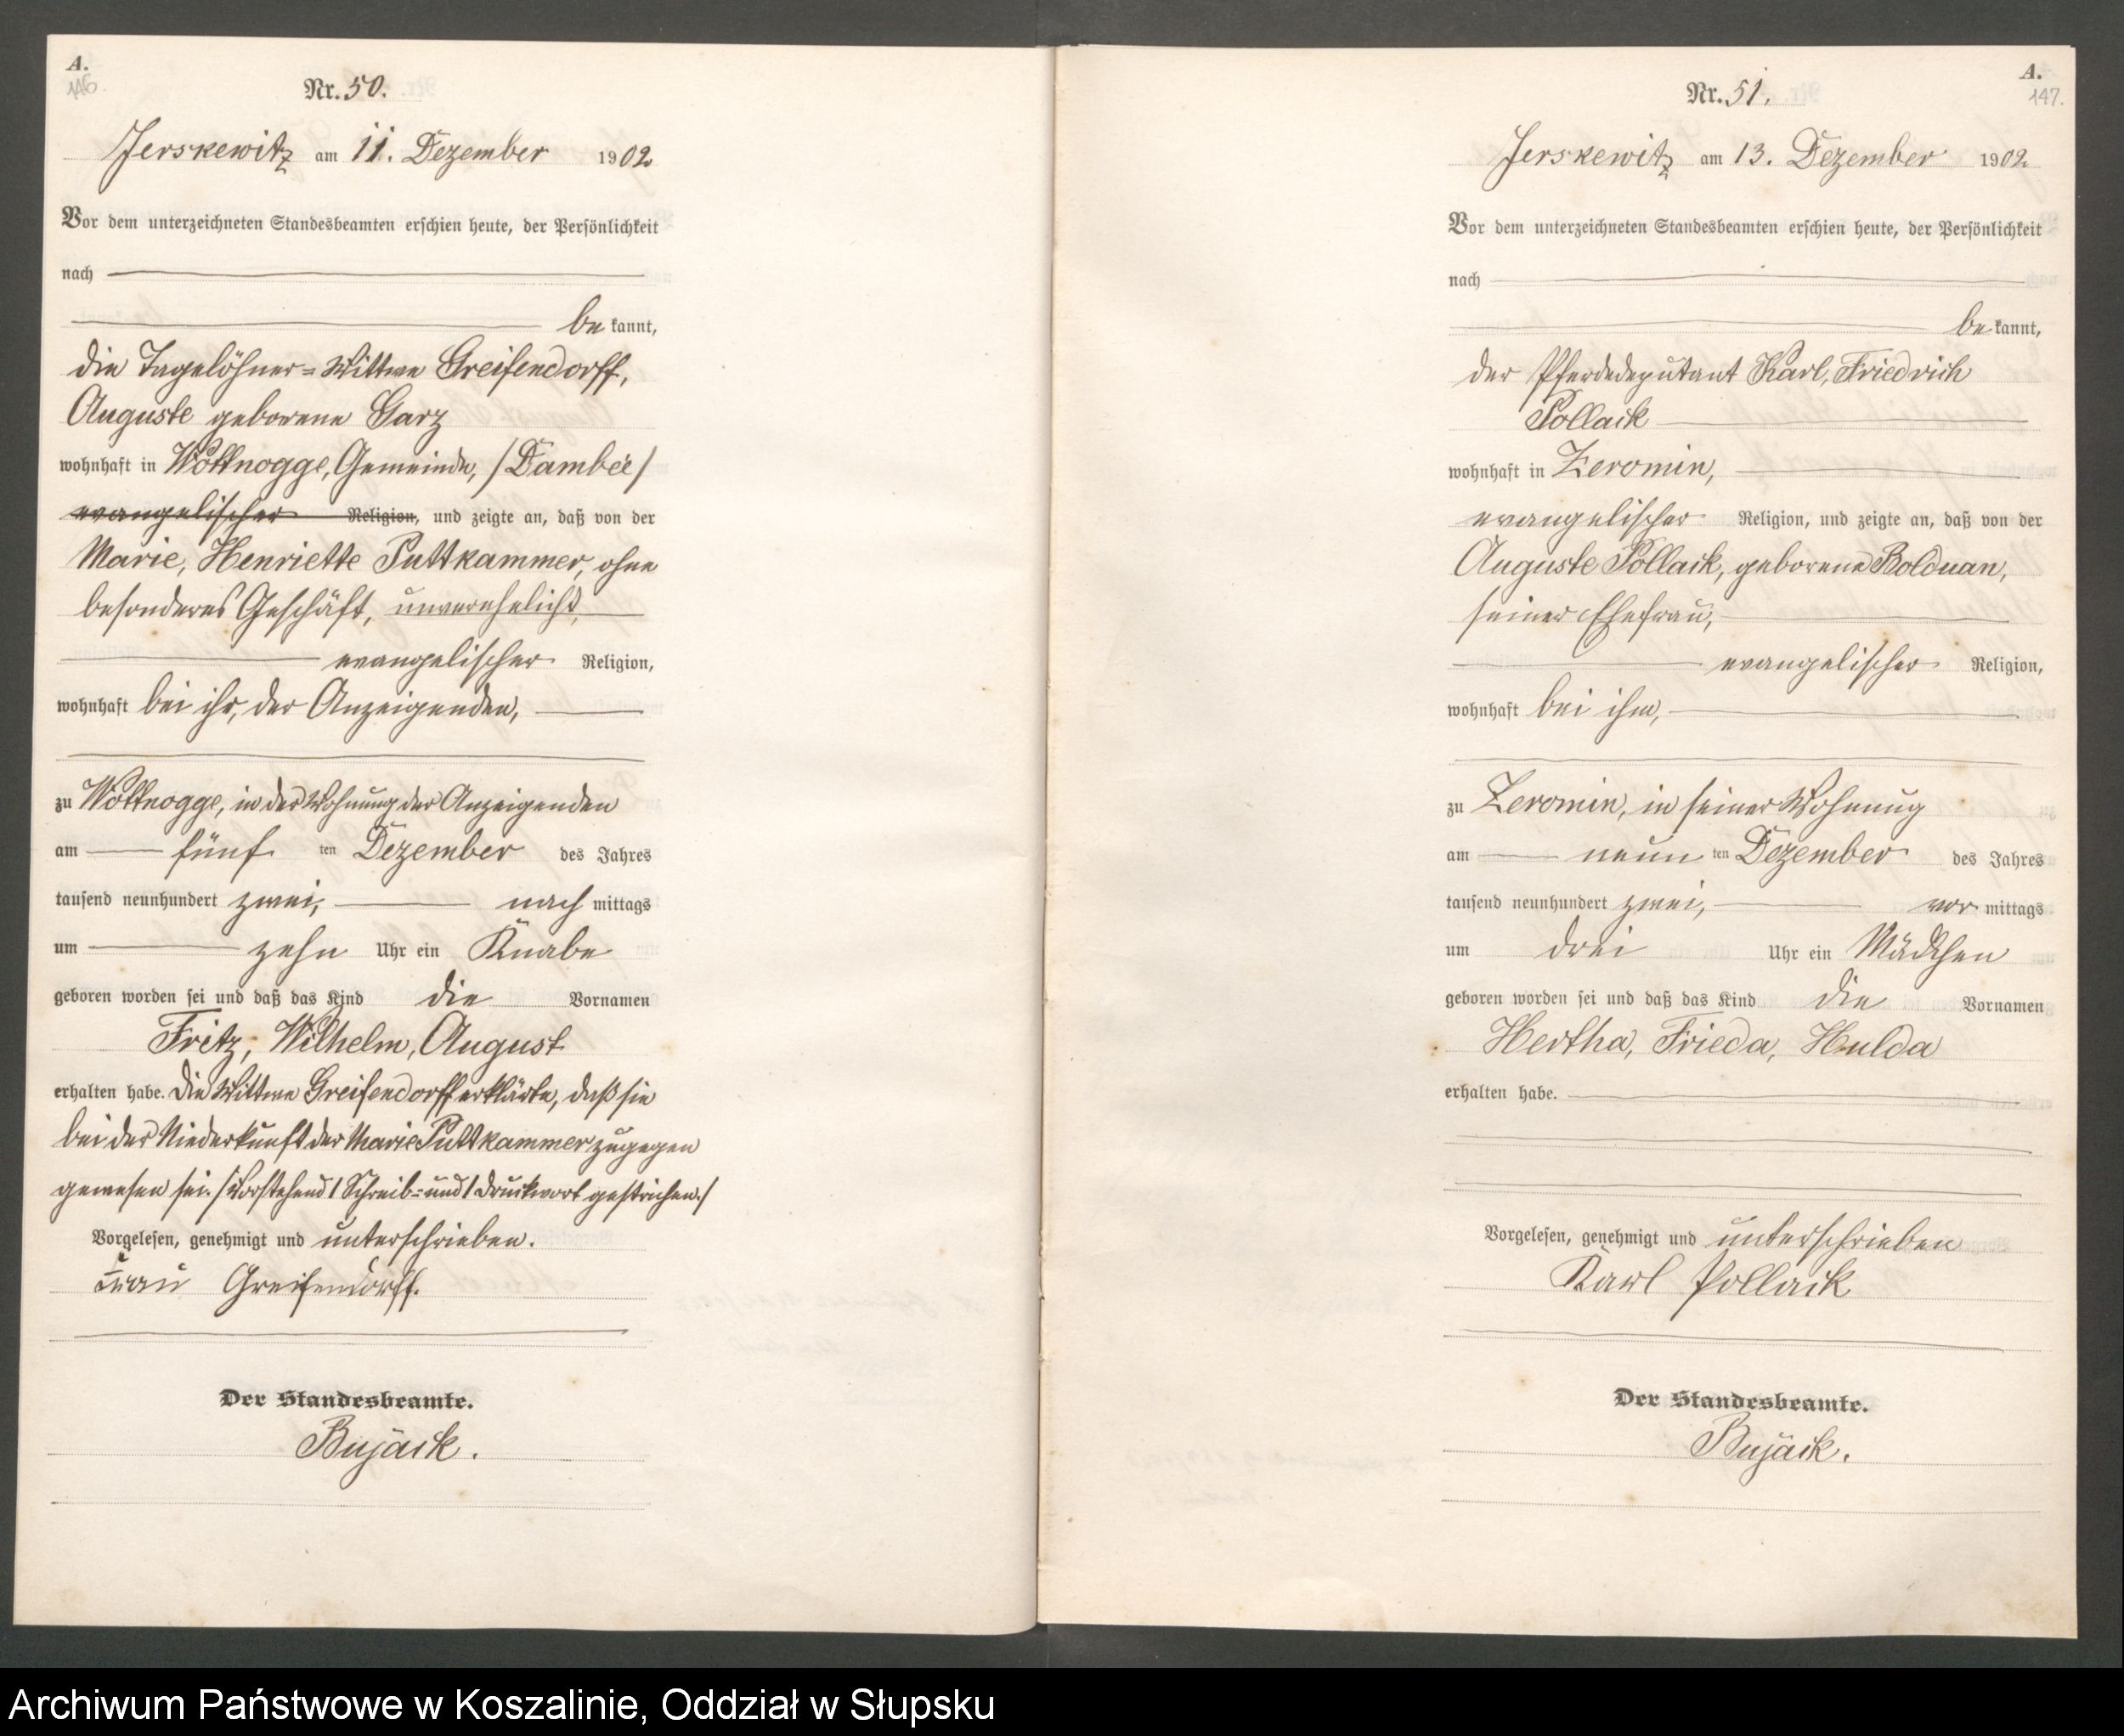 A.
146.
Nr. 50.
Jerskewitz am 11. Dezember 1902
Vor dem unterzeichneten Standesbeamten erschien heute, der Persönlichkeit
nach
be kannt,
die Tagelöhner=Wittwe Greifendorff,
Auguste geborene Garz
wohnhaft in Wottnogge, Gemeinde, /Dambée/
evangelischer Religion, und zeigte an, daß von der
Marie, Henriette Puttkammer, ohne
besonderes Geschäft, unverehelicht,
evangelischer Religion,
wohnhaft bei ihr, der Anzeigenden,
zu Wottnogge, in der Wohnung der Anzeigenden
am fünf ten Dezember des Jahres
tausend neunhundert zwei, nach mittags
um zehn Uhr ein Knabe
geboren worden sei und daß das Kind die Vornamen
Fritz, Wilhelm, August
erhalten habe. Die Wittwe Greifendorff erklärte, daß sie
bei der Niederkunft der Marie Puttkammer zugegen
gewesen sei. /Vorstehend 1 Schreib= und 1 Druckwort gestrichen./
Vorgelesen, genehmigt und unterschrieben.
Frau Greifendorff.
Der Standesbeamte.
Bujäck.
A.
147.
Nr. 51.
Jerskewitz am 13. Dezember 1902
Vor dem unterzeichneten Standesbeamten erschien heute, der Persönlichkeit
nach
be kannt,
der Pferdedeputant Karl, Friedrich
Pollack
wohnhaft in Zeromin,
evangelischer Religion, und zeigte an, daß von der
Auguste Pollack, geborene Bolduan,
seiner Ehefrau,
evangelischer Religion,
wohnhaft bei ihm,
zu Zeromin, in seiner Wohnung
am neun ten Dezember des Jahres
tausend neunhundert zwei, vor mittags
um drei Uhr ein Mädchen
geboren worden sei und daß das Kind die Vornamen
Hertha, Frieda, Hulda
erhalten habe.
Vorgelesen, genehmigt und unterschrieben
Karl Pollack
Der Standesbeamte.
Bujäck.
Archiwum Państwowe w Koszalinie, Oddział w Słupsku